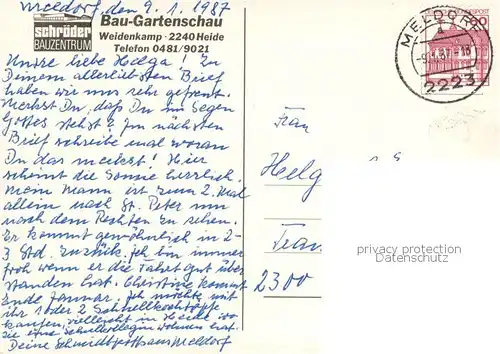 Meldorf, den 9.1.1987
schröder
BAUZENTRUM
Bau-Gartenschau
Weidenkamp · 2240 Heide
Telefon 0481/9021
Unsre liebe Helga! Zu
Deinem allerliebsten Brief
haben wir uns sehr gefreut.
Merkst Du, daß Du im Segen
Gottes stehst? Im nächsten
Brief schreibe mal woran
Du das merkst! Hier
scheint die Sonne herrlich.
Mein Mann ist zum 2. Mal
allein nach St. Peter um
nach dem Rechten zu sehen.
Er kommt gewöhnlich in 2-
3 Std. zurück. Ich bin immer
froh wenn er die Fahrt gut über
standen hat. Christine kommt
Ende Januar. Ich möchte mit
ihr 1 oder 2 Schnellkochtöpfe
kaufen, vielleicht in Heide wo
sie eine Schulkollegin wohnen hat.
Deine Schmidtpotts aus Meldorf
MELDORF
-9.1.87-18
2223
BUNDESPOST
Frau
Helg
Frau
2300
privacy protection
Datenschutz